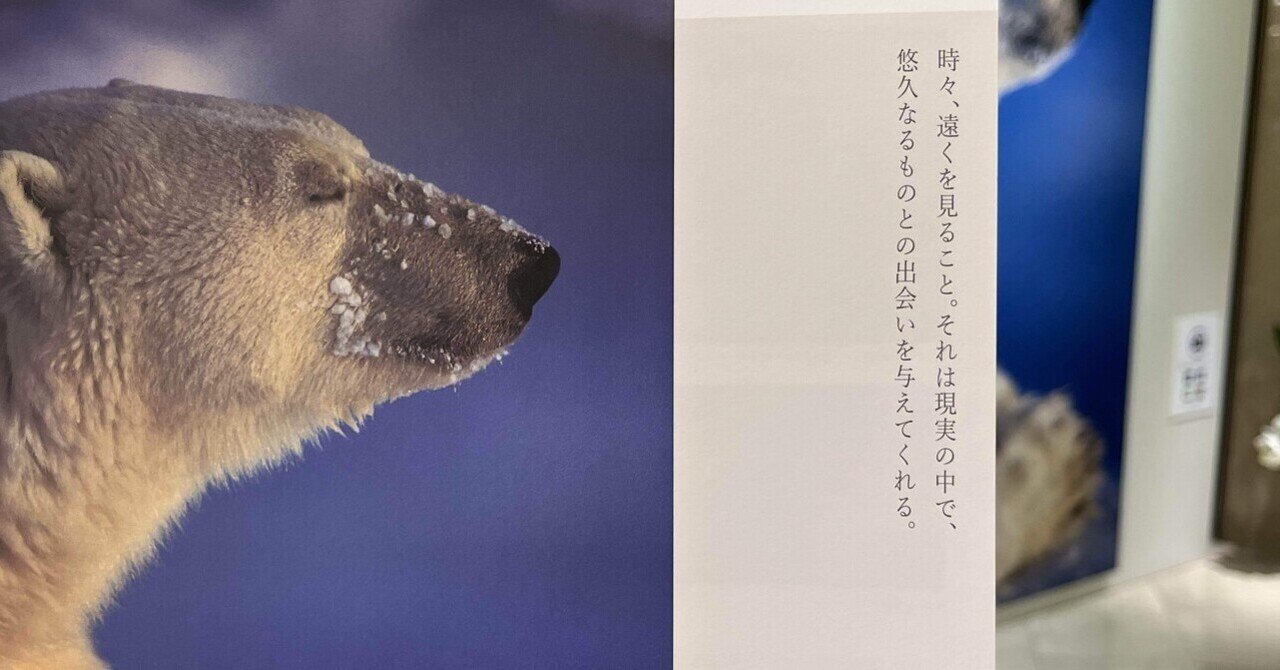 時々、遠くを見ること。それは現実の中で、
悠久なるものとの出会いを与えてくれる。